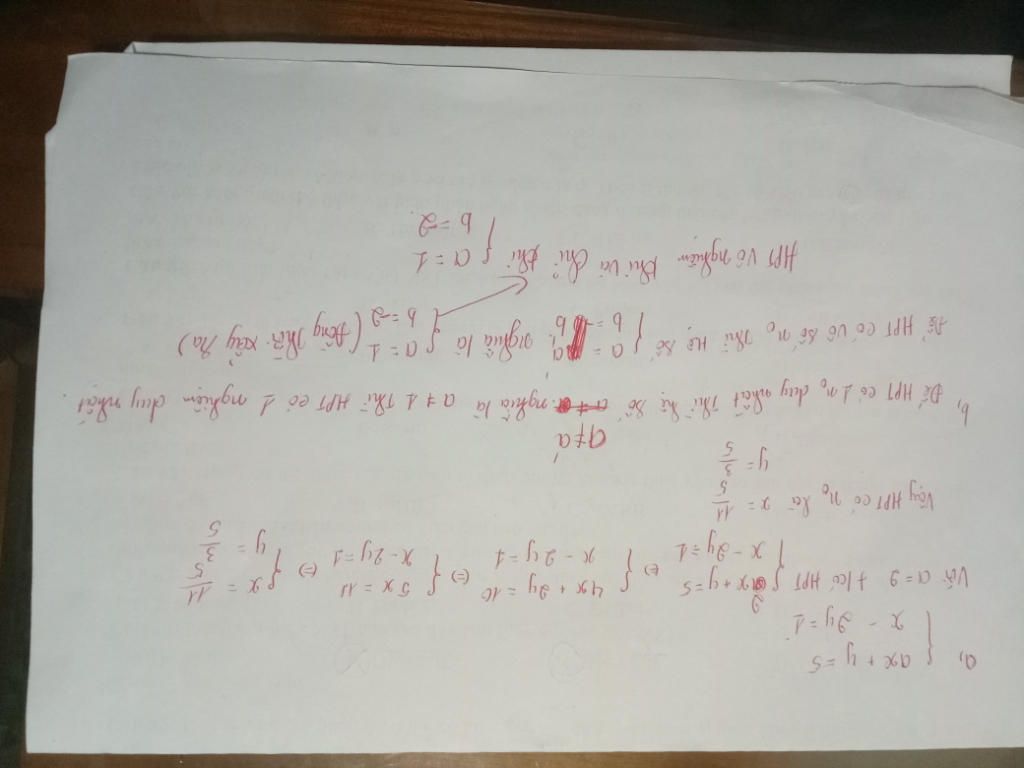 a, { ax + y = 5
x - 2y = 1
Với a = 2 ta có HPT { 2x + y = 5 x - 2y = 1 (=) { 4x + 2y = 10 x - 2y = 1 (=) { 5x = 11 x - 2y = 1 (=) { x = 11/5 y = 3/5
Vậy HPT có n0 là x = 11/5
y = 3/5
a ≠ a'
b, Để HPT có 1 n0 duy nhất thì hệ số nghĩa là a ≠ 1 thì HPT có 1 nghiệm duy nhất.
Để HPT có vô số n0 thì hệ số { a = a' b = b' nghĩa là { a = 1 b = -2 (đồng thời xảy ra)
HPT vô nghiệm khi và chỉ khi { a = 1
b = -2.